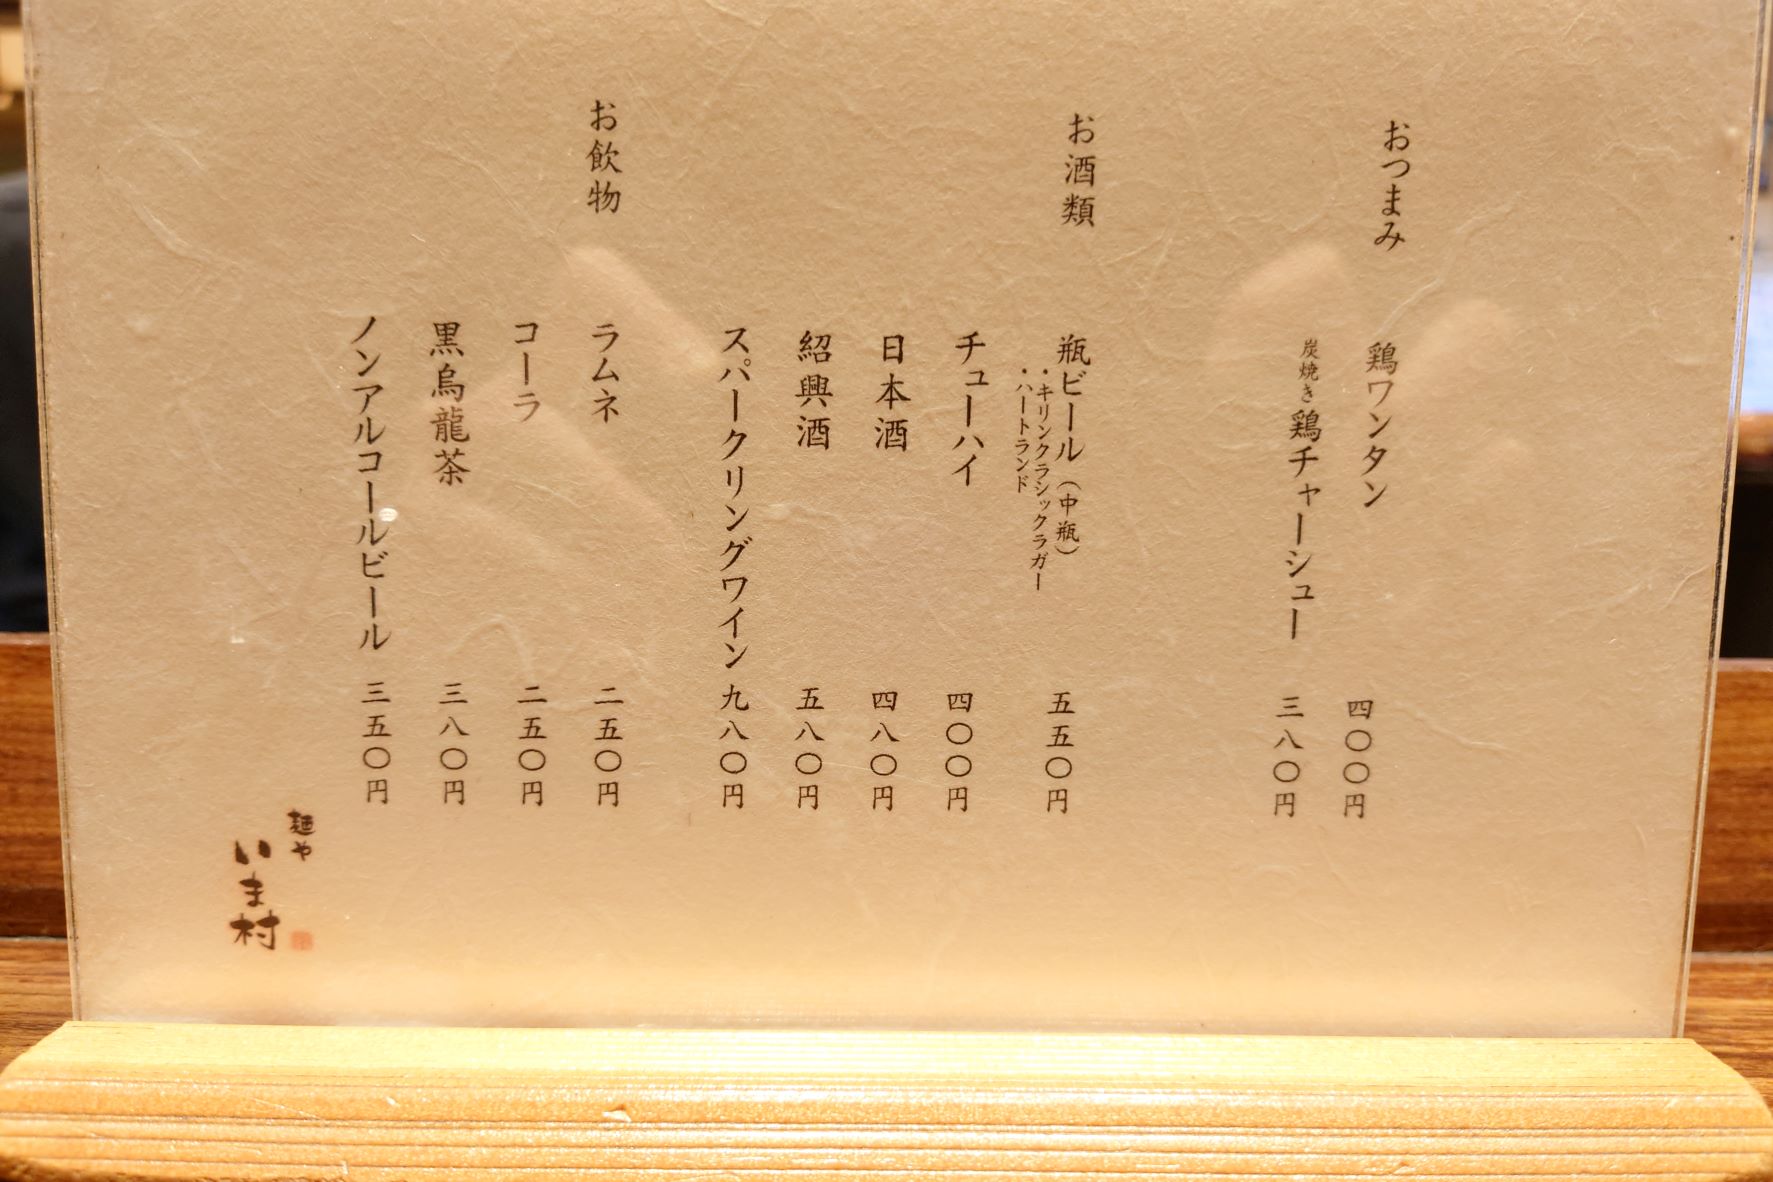 おつまみ
鶏ワンタン 四〇〇円
炭焼き鶏チャーシュー 三八〇円
お酒類
瓶ビール（中瓶） 五五〇円
・キリンクラシックラガー
・ハートランド
チューハイ 四〇〇円
日本酒 四八〇円
紹興酒 五八〇円
スパークリングワイン 九八〇円
お飲物
ラムネ 二五〇円
コーラ 二五〇円
黒烏龍茶 三八〇円
ノンアルコールビール 三五〇円
麺や
いま村